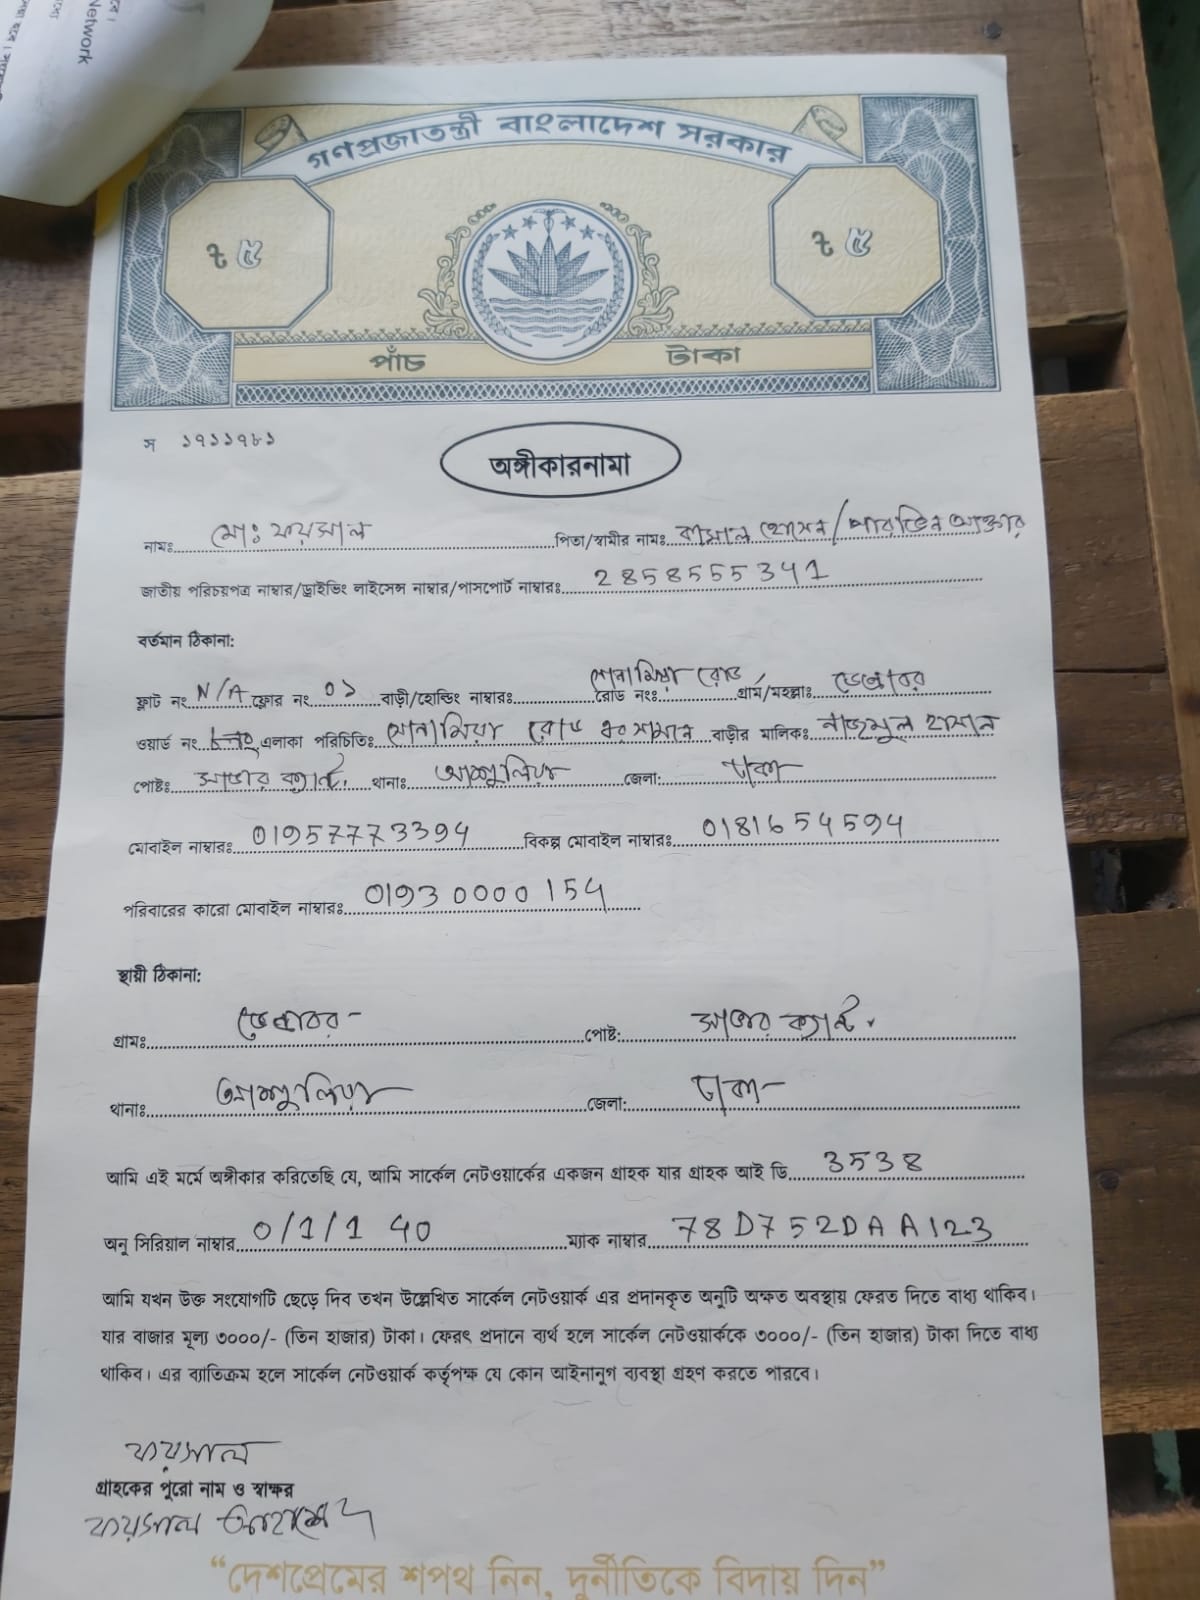 Network
গণপ্রজাতন্ত্রী বাংলাদেশ সরকার
৳ ৫ ৳ ৫
পাঁচ টাকা
স ১৭১১৭৮১
অঙ্গীকারনামা
নামঃ মোঃ ফয়সাল পিতা/স্বামীর নামঃ হোসেন / পারভিন আক্তার
জাতীয় পরিচয়পত্র নাম্বার/ড্রাইভিং লাইসেন্স নাম্বার/পাসপোর্ট নাম্বারঃ 2858555341
বর্তমান ঠিকানা:
ফ্লাট নং N/A ফ্লোর নং ০১ বাড়ী/হোল্ডিং নাম্বারঃ রোড নংঃ সোনামিয়া রোড গ্রাম/মহল্লাঃ ডেন্ডাবর
ওয়ার্ড নং এলাকা পরিচিতিঃ সোনামিয়া রোড বাড়ীর মালিকঃ নাজমুল হাসান
পোষ্টঃ সাভার ক্যান্ট. থানাঃ আশুলিয়া জেলা: ঢাকা
মোবাইল নাম্বারঃ 01957773394 বিকল্প মোবাইল নাম্বারঃ 0181654594
পরিবারের কারো মোবাইল নাম্বারঃ 01930000154
স্থায়ী ঠিকানা:
গ্রামঃ ডেন্ডাবর পোষ্ট: সাভার ক্যান্ট.
থানাঃ আশুলিয়া জেলা: ঢাকা
আমি এই মর্মে অঙ্গীকার করিতেছি যে, আমি সার্কেল নেটওয়ার্কের একজন গ্রাহক যার গ্রাহক আই ডি 3538
অনু সিরিয়াল নাম্বার 0/1/1 40 ম্যাক নাম্বার 78D752DAA123
আমি যখন উক্ত সংযোগটি ছেড়ে দিব তখন উল্লেখিত সার্কেল নেটওয়ার্ক এর প্রদানকৃত অনুটি অক্ষত অবস্থায় ফেরত দিতে বাধ্য থাকিব।
যার বাজার মূল্য ৩০০০/- (তিন হাজার) টাকা। ফেরৎ প্রদানে ব্যর্থ হলে সার্কেল নেটওয়ার্ককে ৩০০০/- (তিন হাজার) টাকা দিতে বাধ্য
থাকিব। এর ব্যাতিক্রম হলে সার্কেল নেটওয়ার্ক কর্তৃপক্ষ যে কোন আইনানুগ ব্যবস্থা গ্রহণ করতে পারবে।
ফয়সাল
গ্রাহকের পুরো নাম ও স্বাক্ষর
ফয়সাল
“দেশপ্রেমের শপথ নিন, দুর্নীতিকে বিদায় দিন”